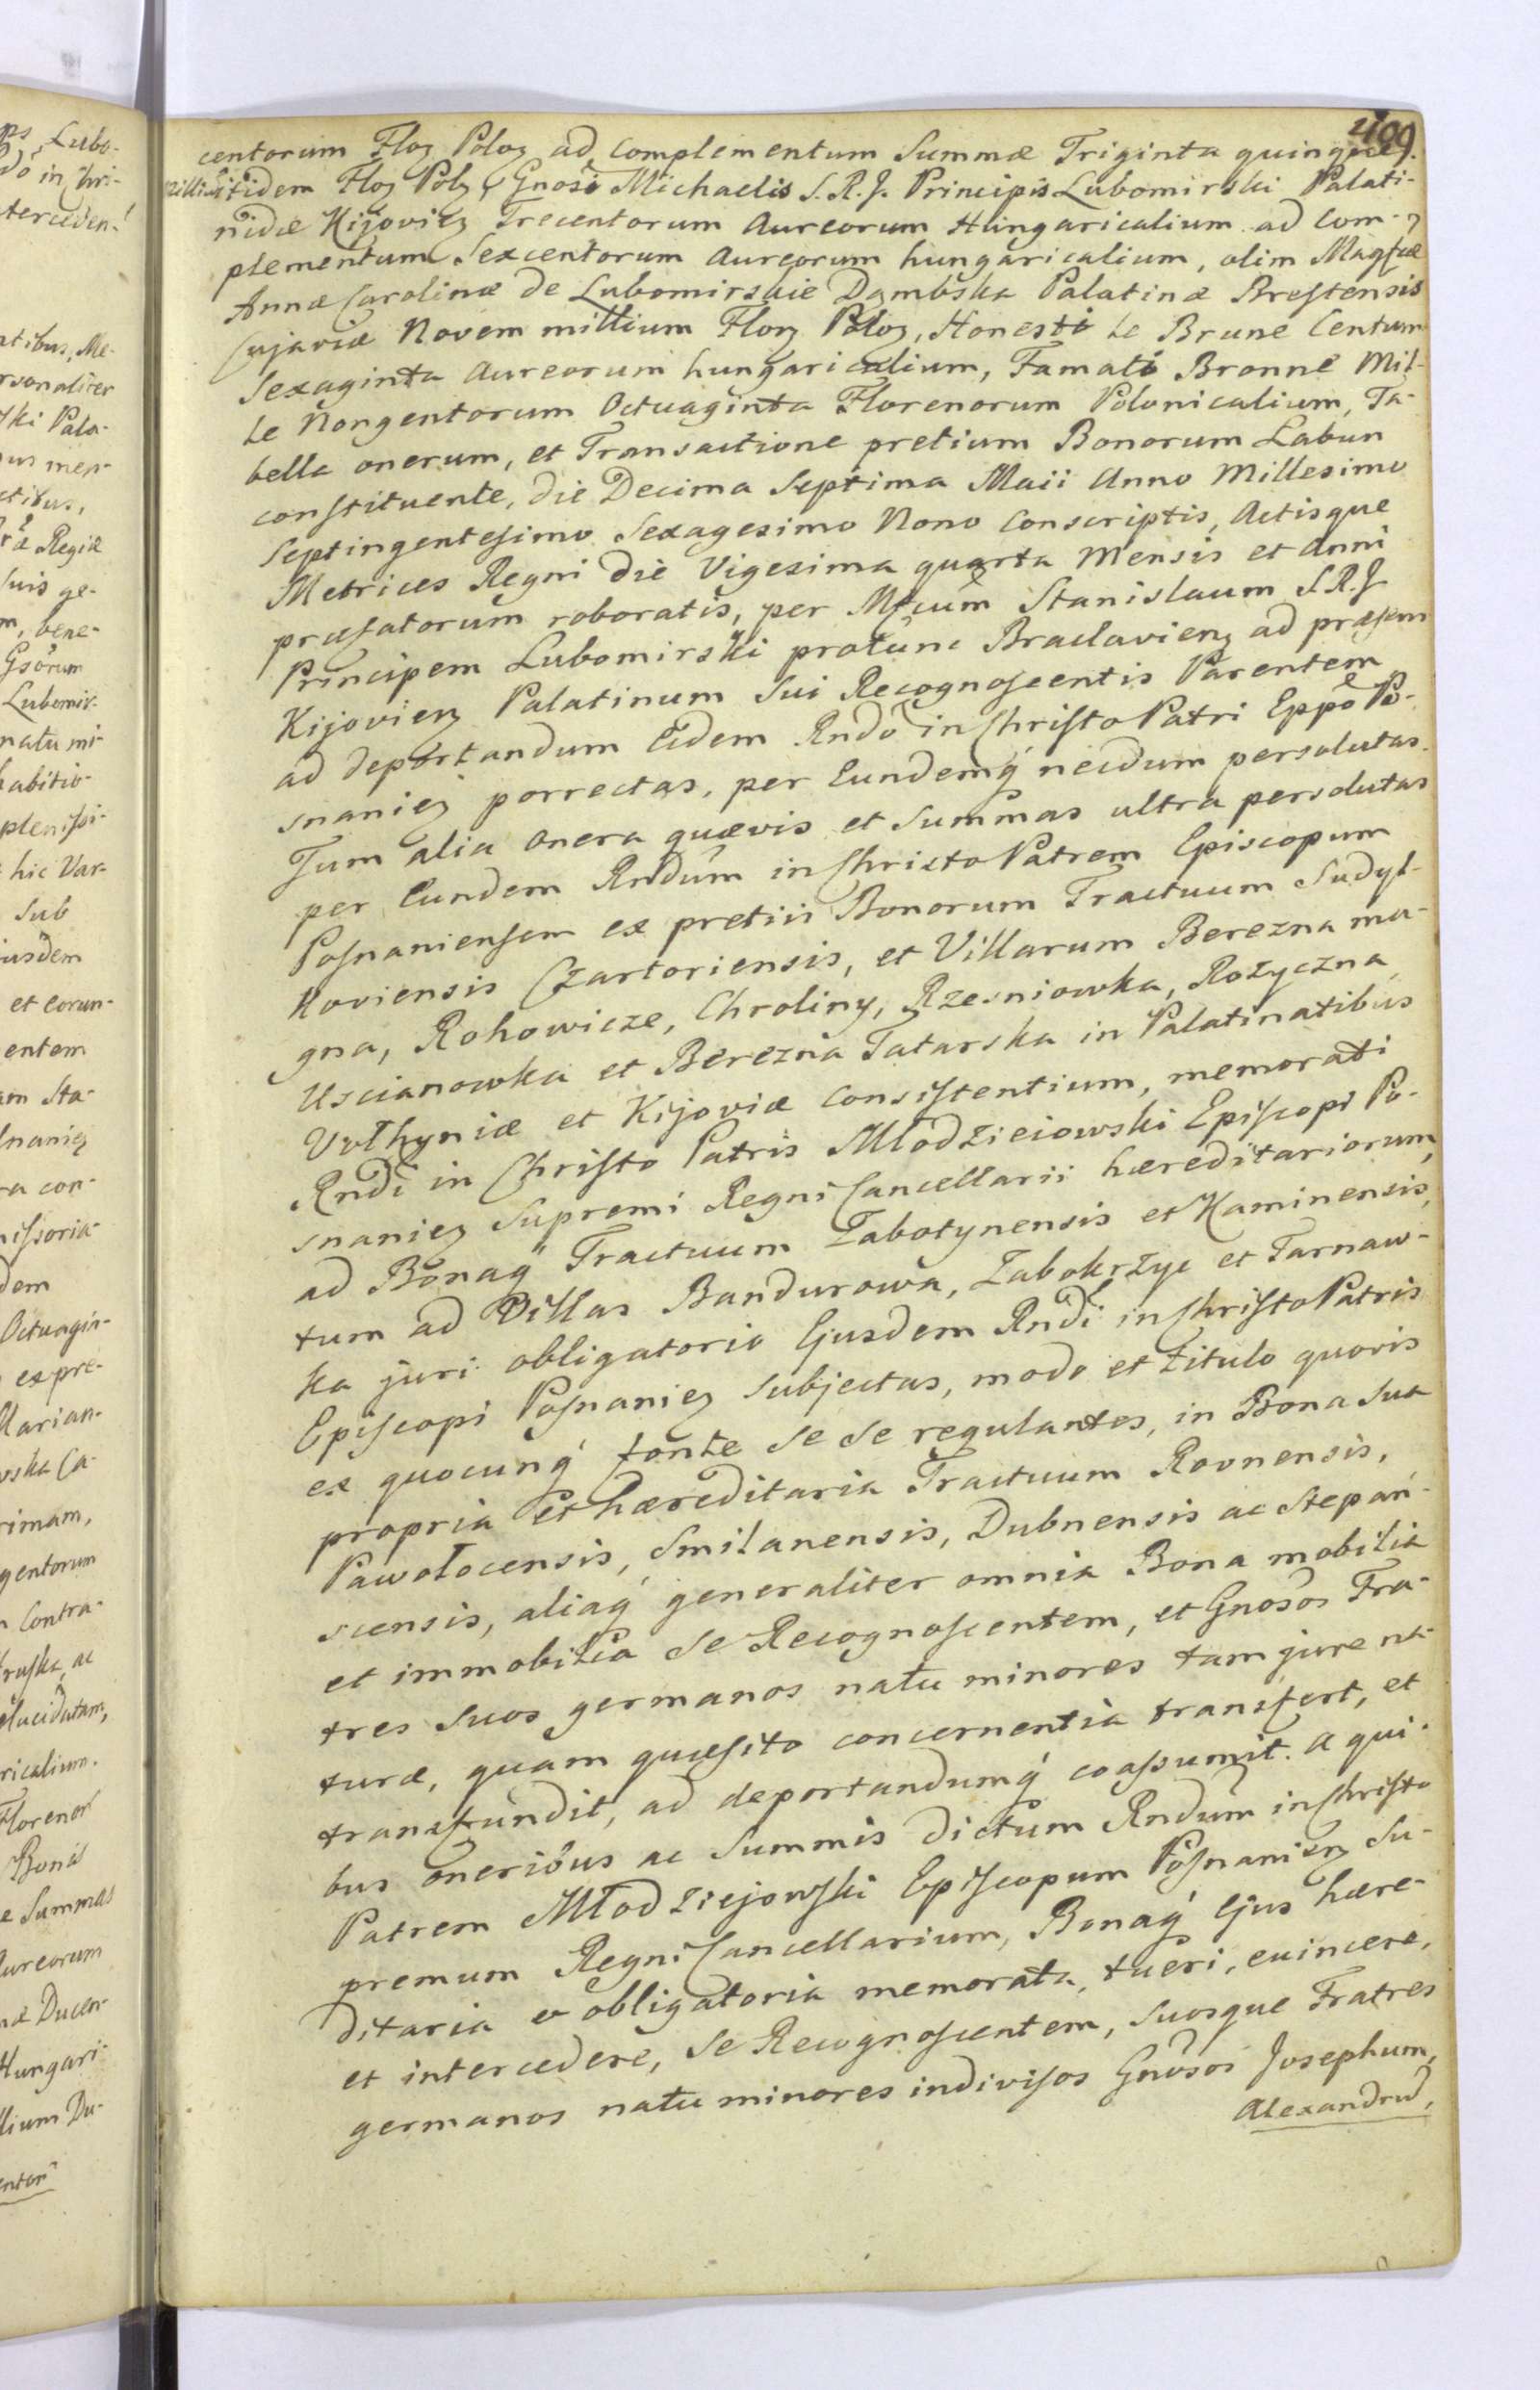 499.
centorum Floꝝ Poloꝝ ad complementum Summæ Triginta quinque
millium itidem Floꝝ Polꝝ Gnosi Michaelis S. R. J. Principis Lubomirski Palati-
nidæ Kijovieꝝ Trecentorum Aureorum Hungaricalium ad Com-
plementum Sexcentorum Aureorum hungaricalium, olim Magfcæ
Annæ Carolinæ de Lubomirskie Dąmbska Palatinæ Brestensis
Cujaviæ Novem millium Floꝝ Poloꝝ, Honesti Le Brune Centum
Sexaginta Aureorum hungaricalium, Famati Bronne Mil-
le Nongentorum Octuaginta Florenorum Polonicalium, Ta-
bella onerum, et Transactione pretium Bonorum Labun
constituente, die Decima Septima Maii Anno Millesimo
Septingentesimo Sexagesimo Nono Conscriptis, Actisque
Metrices Regni die Vigesima quarta Mensis et Anni
præfatorum roboratis, per Mfcum Stanislaum S. R. J.
Principem Lubomirski protunc Braclavienꝝ ad præsens
Kijovienꝝ Palatinum Sui Recognoscentis Parentem
ad deportandum Eidem Rndo in Christo Patri Eppo Po-
snanieꝝ porrectas, per Eundemq́ necdum persolutas.
Tum alia onera quævis et Summas ultra persolutas
per Eundem Rndum in Christo Patrem Episcopum
Posnaniensem ex pretiis Bonorum Tractuum Sudył-
koviensis Czartoriensis, et Villarum Berezna ma-
gna, Rohowicze, Chroliny, Rzesniowka, Rożyczna,
Uscianowka et Berezna Tatarska in Palatinatibus
Volhyniæ et Kijoviæ Consistentium, memorati
Rndi in Christo Patris Młodzieiowski Episcopi Po-
snanieꝝ Supremi Regni Cancellarii hæreditariorum,
ad Bonaq́ Tractuum Żabotynensis et Kaminensis,
tum ad Villas Bandurowa, Zabokrzyc et Tarnaw-
ka juri obligatorio Ejusdem Rndi in Christo Patris
Episcopi Posnanieꝝ Subjectas, modo et titulo quovis
ex quocunq́ fonte se se regulantes, in Bona sua
propria et hæreditaria Tractuum Rovnensis,
Pawołocensis, Smilanensis, Dubnensis ac Stepań-
scensis, aliaq́ generaliter omnia Bona mobilia
et immobilia se Recognoscentem, et Gnosos Fra-
tres suos germanos natu minores tam jure na-
turæ, quam quæsito concernentia transfert, et
transfundit, ad deportandumq́ coassumit. a qui-
bus oneribus ac Summis dictum Rndum in Christo
Patrem Młodziejowski Episcopum Posnanienꝝ Su-
premum Regni Cancellarium, Bonaq́ Ejus hære-
ditaria & obligatoria memorata, tueri, evincere,
et intercedere, se Recognoscentem, suosque Fratres
germanos natu minores indivisos Gnosos Josephum,
Alexandrũ,